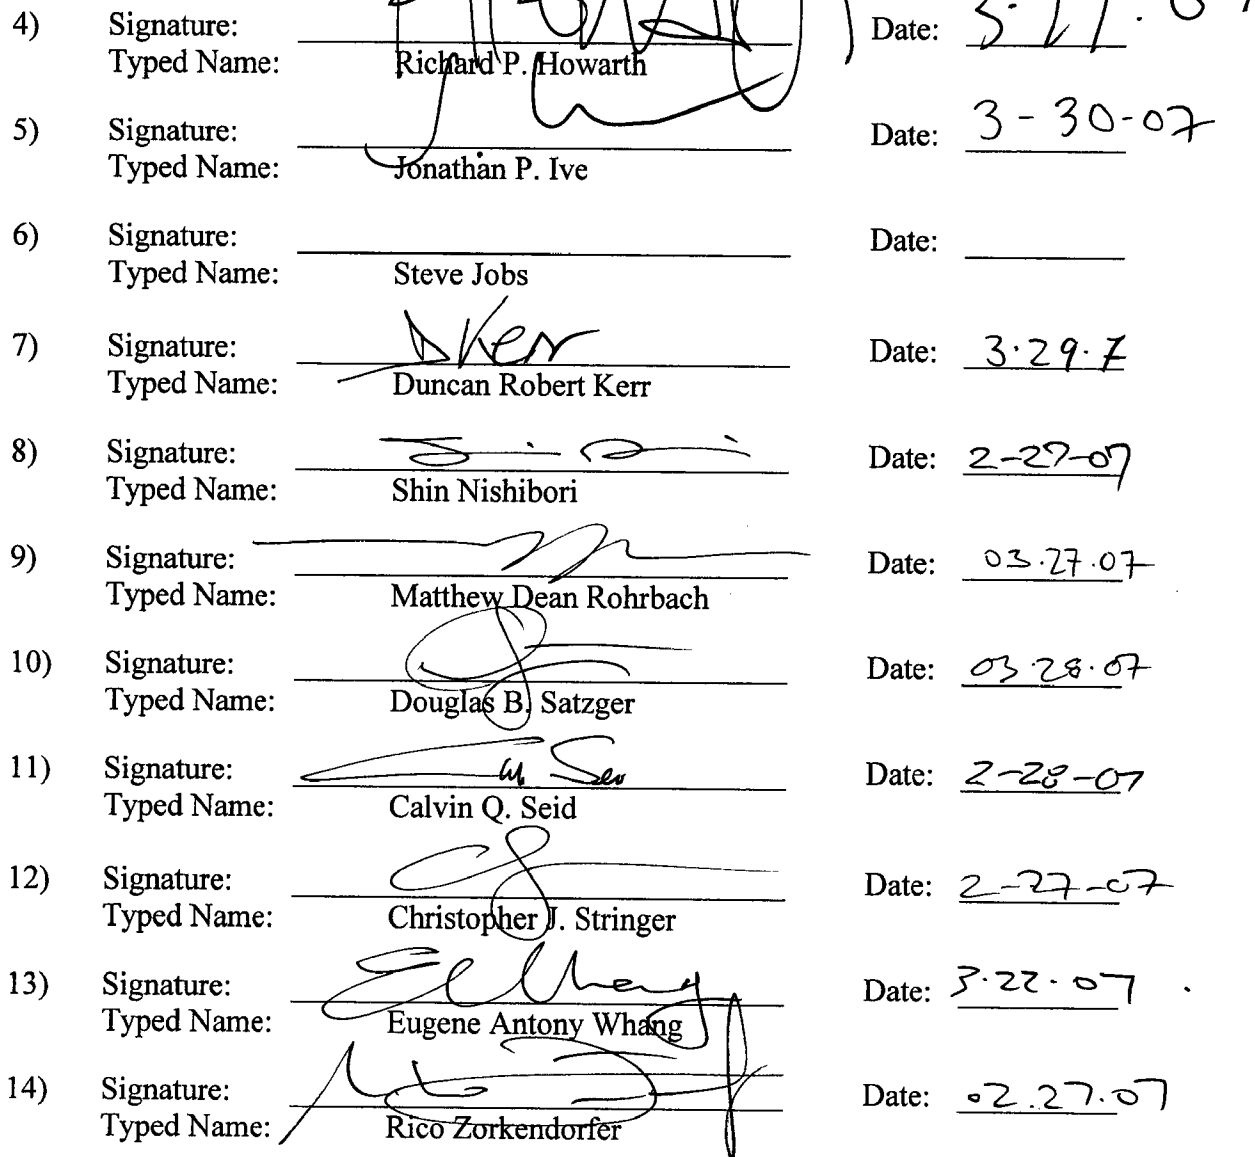 4) Signature: Date:
Typed Name: Richard P. Howarth
5) Signature: Date: 3-30-07
Typed Name: Jonathan P. Ive
6) Signature: Date:
Typed Name: Steve Jobs
7) Signature: DKerr Date: 3.29.7
Typed Name: Duncan Robert Kerr
8) Signature: Date: 2-27-07
Typed Name: Shin Nishibori
9) Signature: Date: 03.27.07
Typed Name: Matthew Dean Rohrbach
10) Signature: Date: 03.28.07
Typed Name: Douglas B. Satzger
11) Signature: Date: 2-28-07
Typed Name: Calvin Q. Seid
12) Signature: Date: 2-27-07
Typed Name: Christopher J. Stringer
13) Signature: Date: 3.22.07
Typed Name: Eugene Antony Whang
14) Signature: Date: 02.27.07
Typed Name: Rico Zorkendorfer